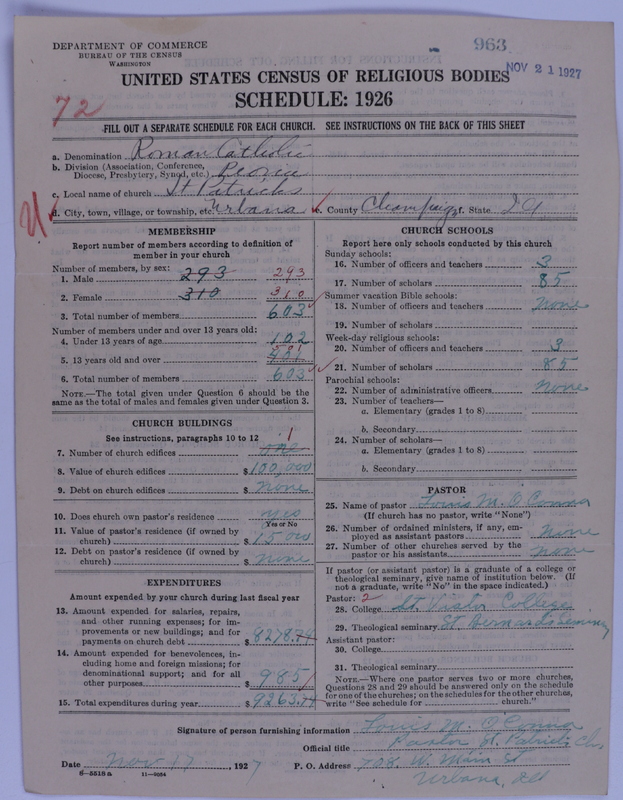 DEPARTMENT OF COMMERCE
BUREAU OF THE CENSUS
WASHINGTON
963
NOV 21 1927
UNITED STATES CENSUS OF RELIGIOUS BODIES
SCHEDULE: 1926
72
FILL OUT A SEPARATE SCHEDULE FOR EACH CHURCH. SEE INSTRUCTIONS ON THE BACK OF THIS SHEET
a. Denomination Roman Catholic
b. Division (Association, Conference, Diocese, Presbytery, Synod, etc.) Peoria
c. Local name of church St Patricks
d. City, town, village, or township, etc. Urbana e. County Champaign f. State Ill
MEMBERSHIP
Report number of members according to definition of
member in your church
Number of members, by sex:
1. Male 293 293
2. Female 310 310
3. Total number of members 603
Number of members under and over 13 years old:
4. Under 13 years of age 102
5. 13 years old and over 501
6. Total number of members 603
NOTE.—The total given under Question 6 should be
same as the total of males and females given under Question 3.
CHURCH BUILDINGS
See instructions, paragraphs 10 to 12 1
7. Number of church edifices one
8. Value of church edifices $ 100,000
9. Debt on church edifices $ none
10. Does church own pastor's residence yes
(Yes or No)
11. Value of pastor's residence (if owned by
church) $ 15000
12. Debt on pastor's residence (if owned by
church) $ none
EXPENDITURES
Amount expended by your church during last fiscal year
13. Amount expended for salaries, repairs,
and other running expenses; for im-
provements or new buildings; and for
payments on church debt $ 8278.74
14. Amount expended for benevolences, in-
cluding home and foreign missions; for
denominational support; and for all
other purposes $ 985
15. Total expenditures during year $ 9263.74
CHURCH SCHOOLS
Report here only schools conducted by this church
Sunday schools:
16. Number of officers and teachers 3
17. Number of scholars 85
Summer vacation Bible schools:
18. Number of officers and teachers none
19. Number of scholars
Week-day religious schools:
20. Number of officers and teachers 3
21. Number of scholars 85
Parochial schools:
22. Number of administrative officers none
23. Number of teachers—
a. Elementary (grades 1 to 8)
b. Secondary
24. Number of scholars—
a. Elementary (grades 1 to 8)
b. Secondary
PASTOR
25. Name of pastor Louis M. O Connor
(If church has no pastor, write "None")
26. Number of ordained ministers, if any, em-
ployed as assistant pastors None
27. Number of other churches served by the
pastor or his assistants none
If pastor (or assistant pastor) is a graduate of a college or
theological seminary, give name of institution below. (If
not a graduate, write "No" in the space indicated.)
Pastor: 2
28. College St. Viator College
29. Theological seminary St Bernards Seminary
Assistant pastor:
30. College
31. Theological seminary
NOTE.—Where one pastor serves two or more churches,
Questions 28 and 29 should be answered only on the schedule
for one of the churches; on the schedules for the other churches,
write "See schedule for church."
Signature of person furnishing information Louis M. O Connor
Official title Pastor St. Patricks Ch.
Date Nov 17, 1927 P. O. Address 708 W. Main St
Urbana, Ill
8-5518a 11-9684